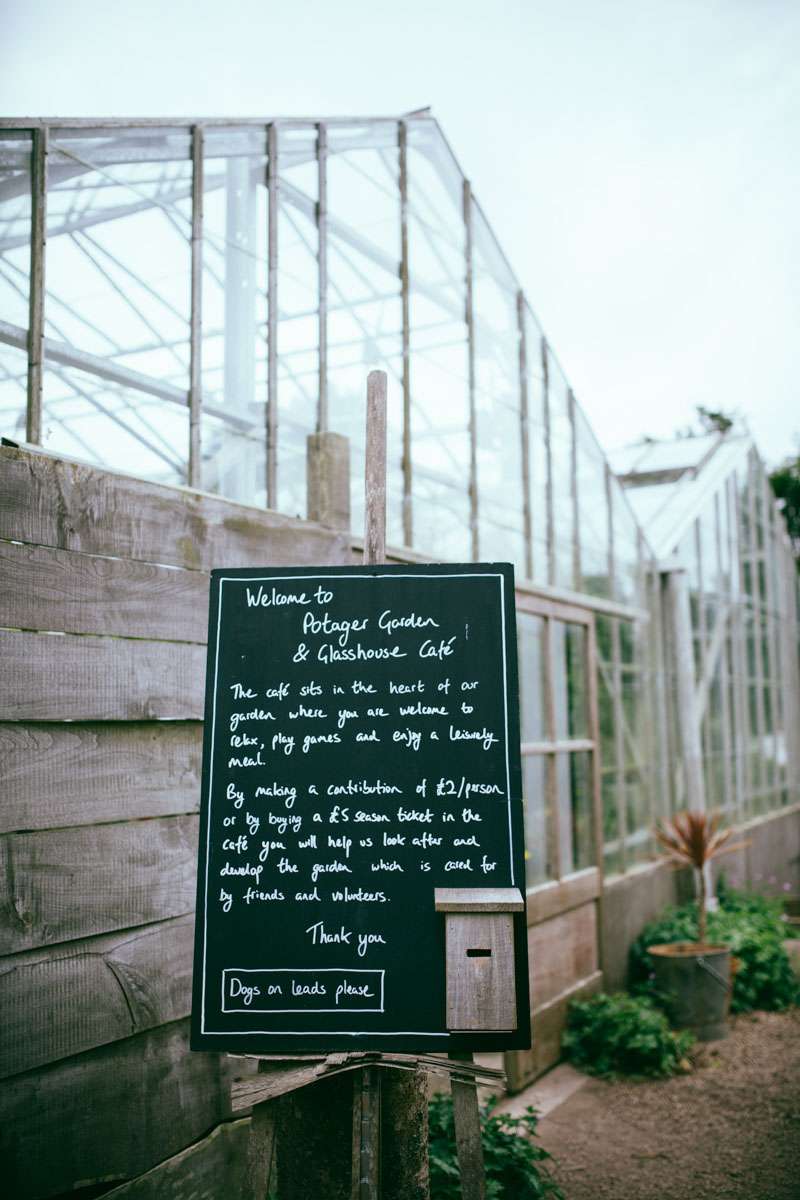 Welcome to
Potager Garden
& Glasshouse Café
The café sits in the heart of our
garden where you are welcome to
relax, play games and enjoy a leisurely
meal.
By making a contribution of £2/person
or by buying a £5 season ticket in the
café you will help us look after and
develop the garden which is cared for
by friends and volunteers.
Thank you
Dogs on leads please